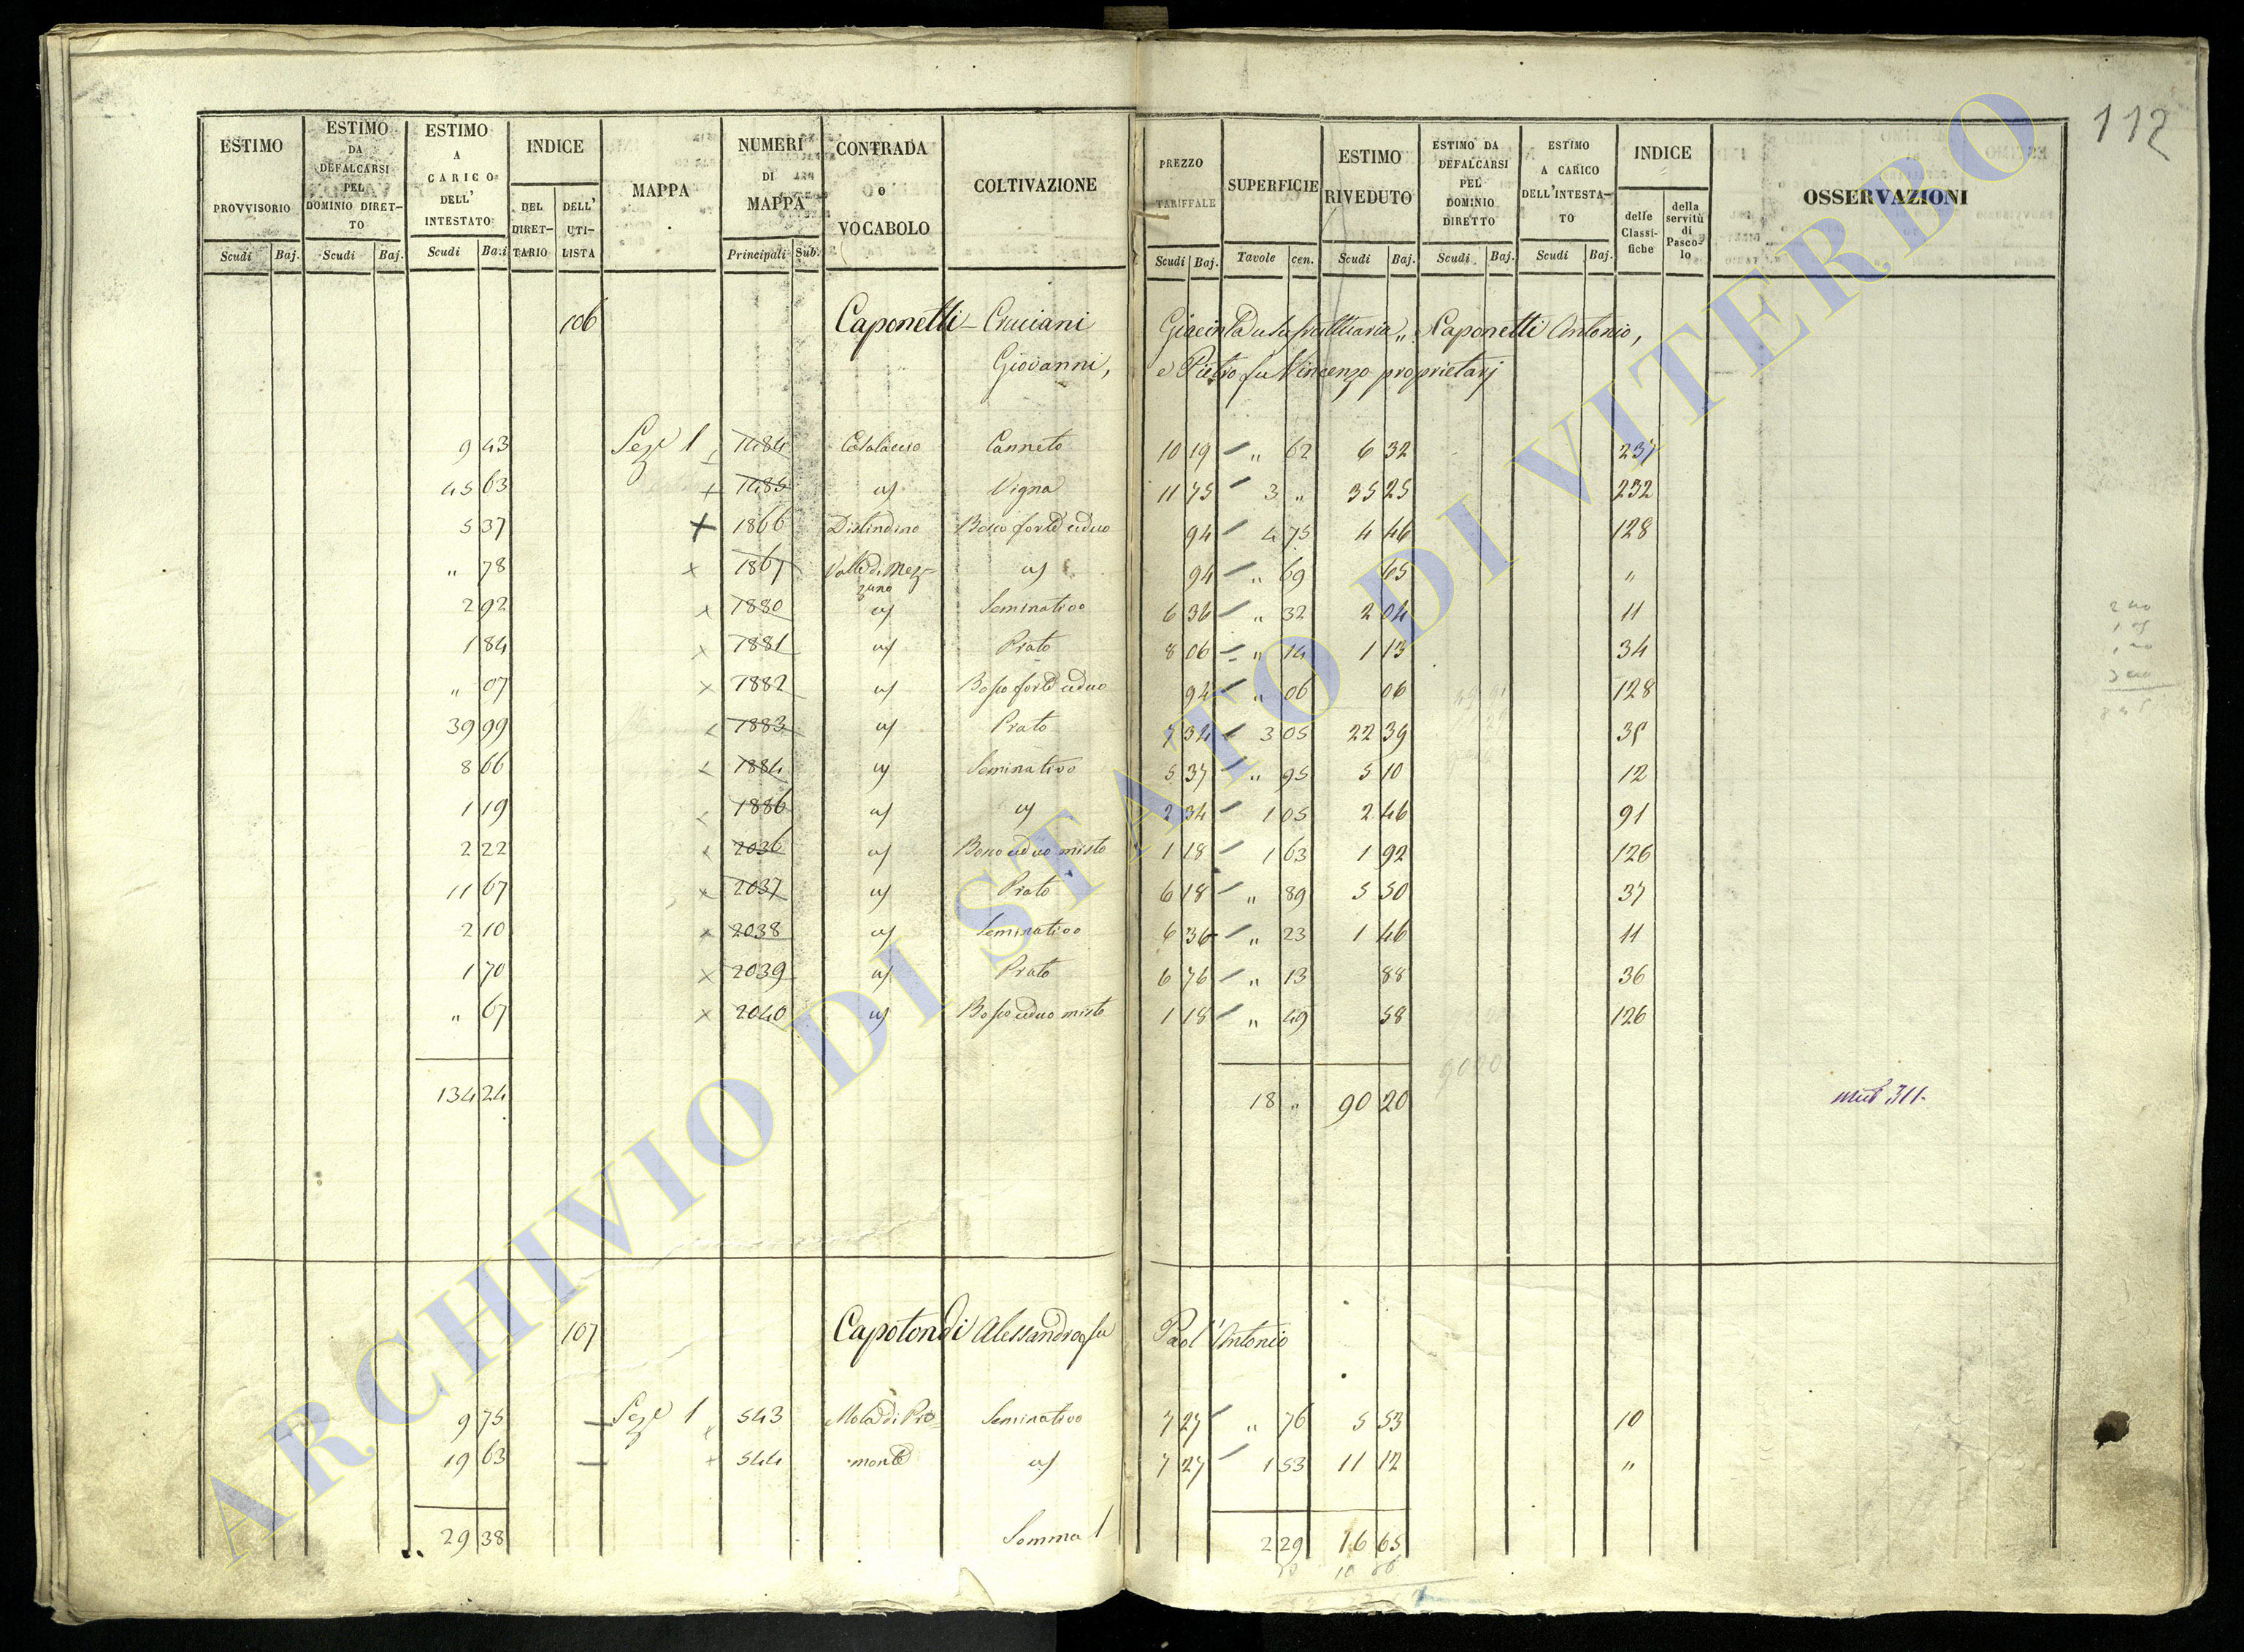 112
ESTIMO PROVVISORIO Scudi Baj.
ESTIMO DA DEFALCARSI PEL DOMINIO DIRETTO Scudi Baj.
ESTIMO A CARICO DELL' INTESTATO Scudi Baj
INDICE DEL DIRETTARIO DELL' UTILISTA
MAPPA
NUMERI DI MAPPA Principali Sub.
CONTRADA o VOCABOLO
COLTIVAZIONE
PREZZO TARIFFALE Scudi Baj.
SUPERFICIE Tavole cen.
ESTIMO RIVEDUTO Scudi Baj.
ESTIMO DA DEFALCARSI PEL DOMINIO DIRETTO Scudi Baj.
ESTIMO A CARICO DELL'INTESTATO Scudi Baj.
INDICE delle Classifiche della servitù di Pascolo
OSSERVAZIONI
106 Caponetti - Cruciani Giacinta usufruttuaria „ Caponetti Antonio,
Giovanni, e Pietro fu Vincenzo proprietarj
9 43 Seze 1 1484 Canneto 10 19 „ 62 6 32 237
45 63 1485 Vigna 11 75 3 „ 35 25 232
5 37 1866 Bosco forte ceduo 94 4 75 4 46 128
„ 78 1867 Valle di Mezzano 94 „ 69 65 „
2 92 1880 Seminativo 6 36 „ 32 2 04 11
1 84 1881 Prato 8 06 „ 14 1 13 34
„ 07 1882 Bosco forte ceduo 94 „ 06 06 128
39 99 1883 Prato 7 34 3 05 22 39 35
8 66 1884 Seminativo 5 37 „ 95 5 10 12
1 19 1886 2 34 1 05 2 46 91
2 22 2036 Bosco ceduo misto 1 18 1 63 1 92 126
11 67 2037 Prato 6 18 „ 89 5 50 37
2 10 2038 Seminativo 6 36 „ 23 1 46 11
1 70 2039 Prato 6 76 „ 13 88 36
„ 67 2040 Bosco ceduo misto 1 18 „ 49 58 126
134 24 18 „ 90 20 mut 311
107 Capotondi Alessandro fu Paol'Antonio
9 75 Seze 1 543 Mola di Pro- Seminativo 7 27 „ 76 5 53 10
19 63 544 monte 7 27 1 53 11 12 „
29 38 Somma 2 29 16 65
ARCHIVIO DI STATO DI VITERBO